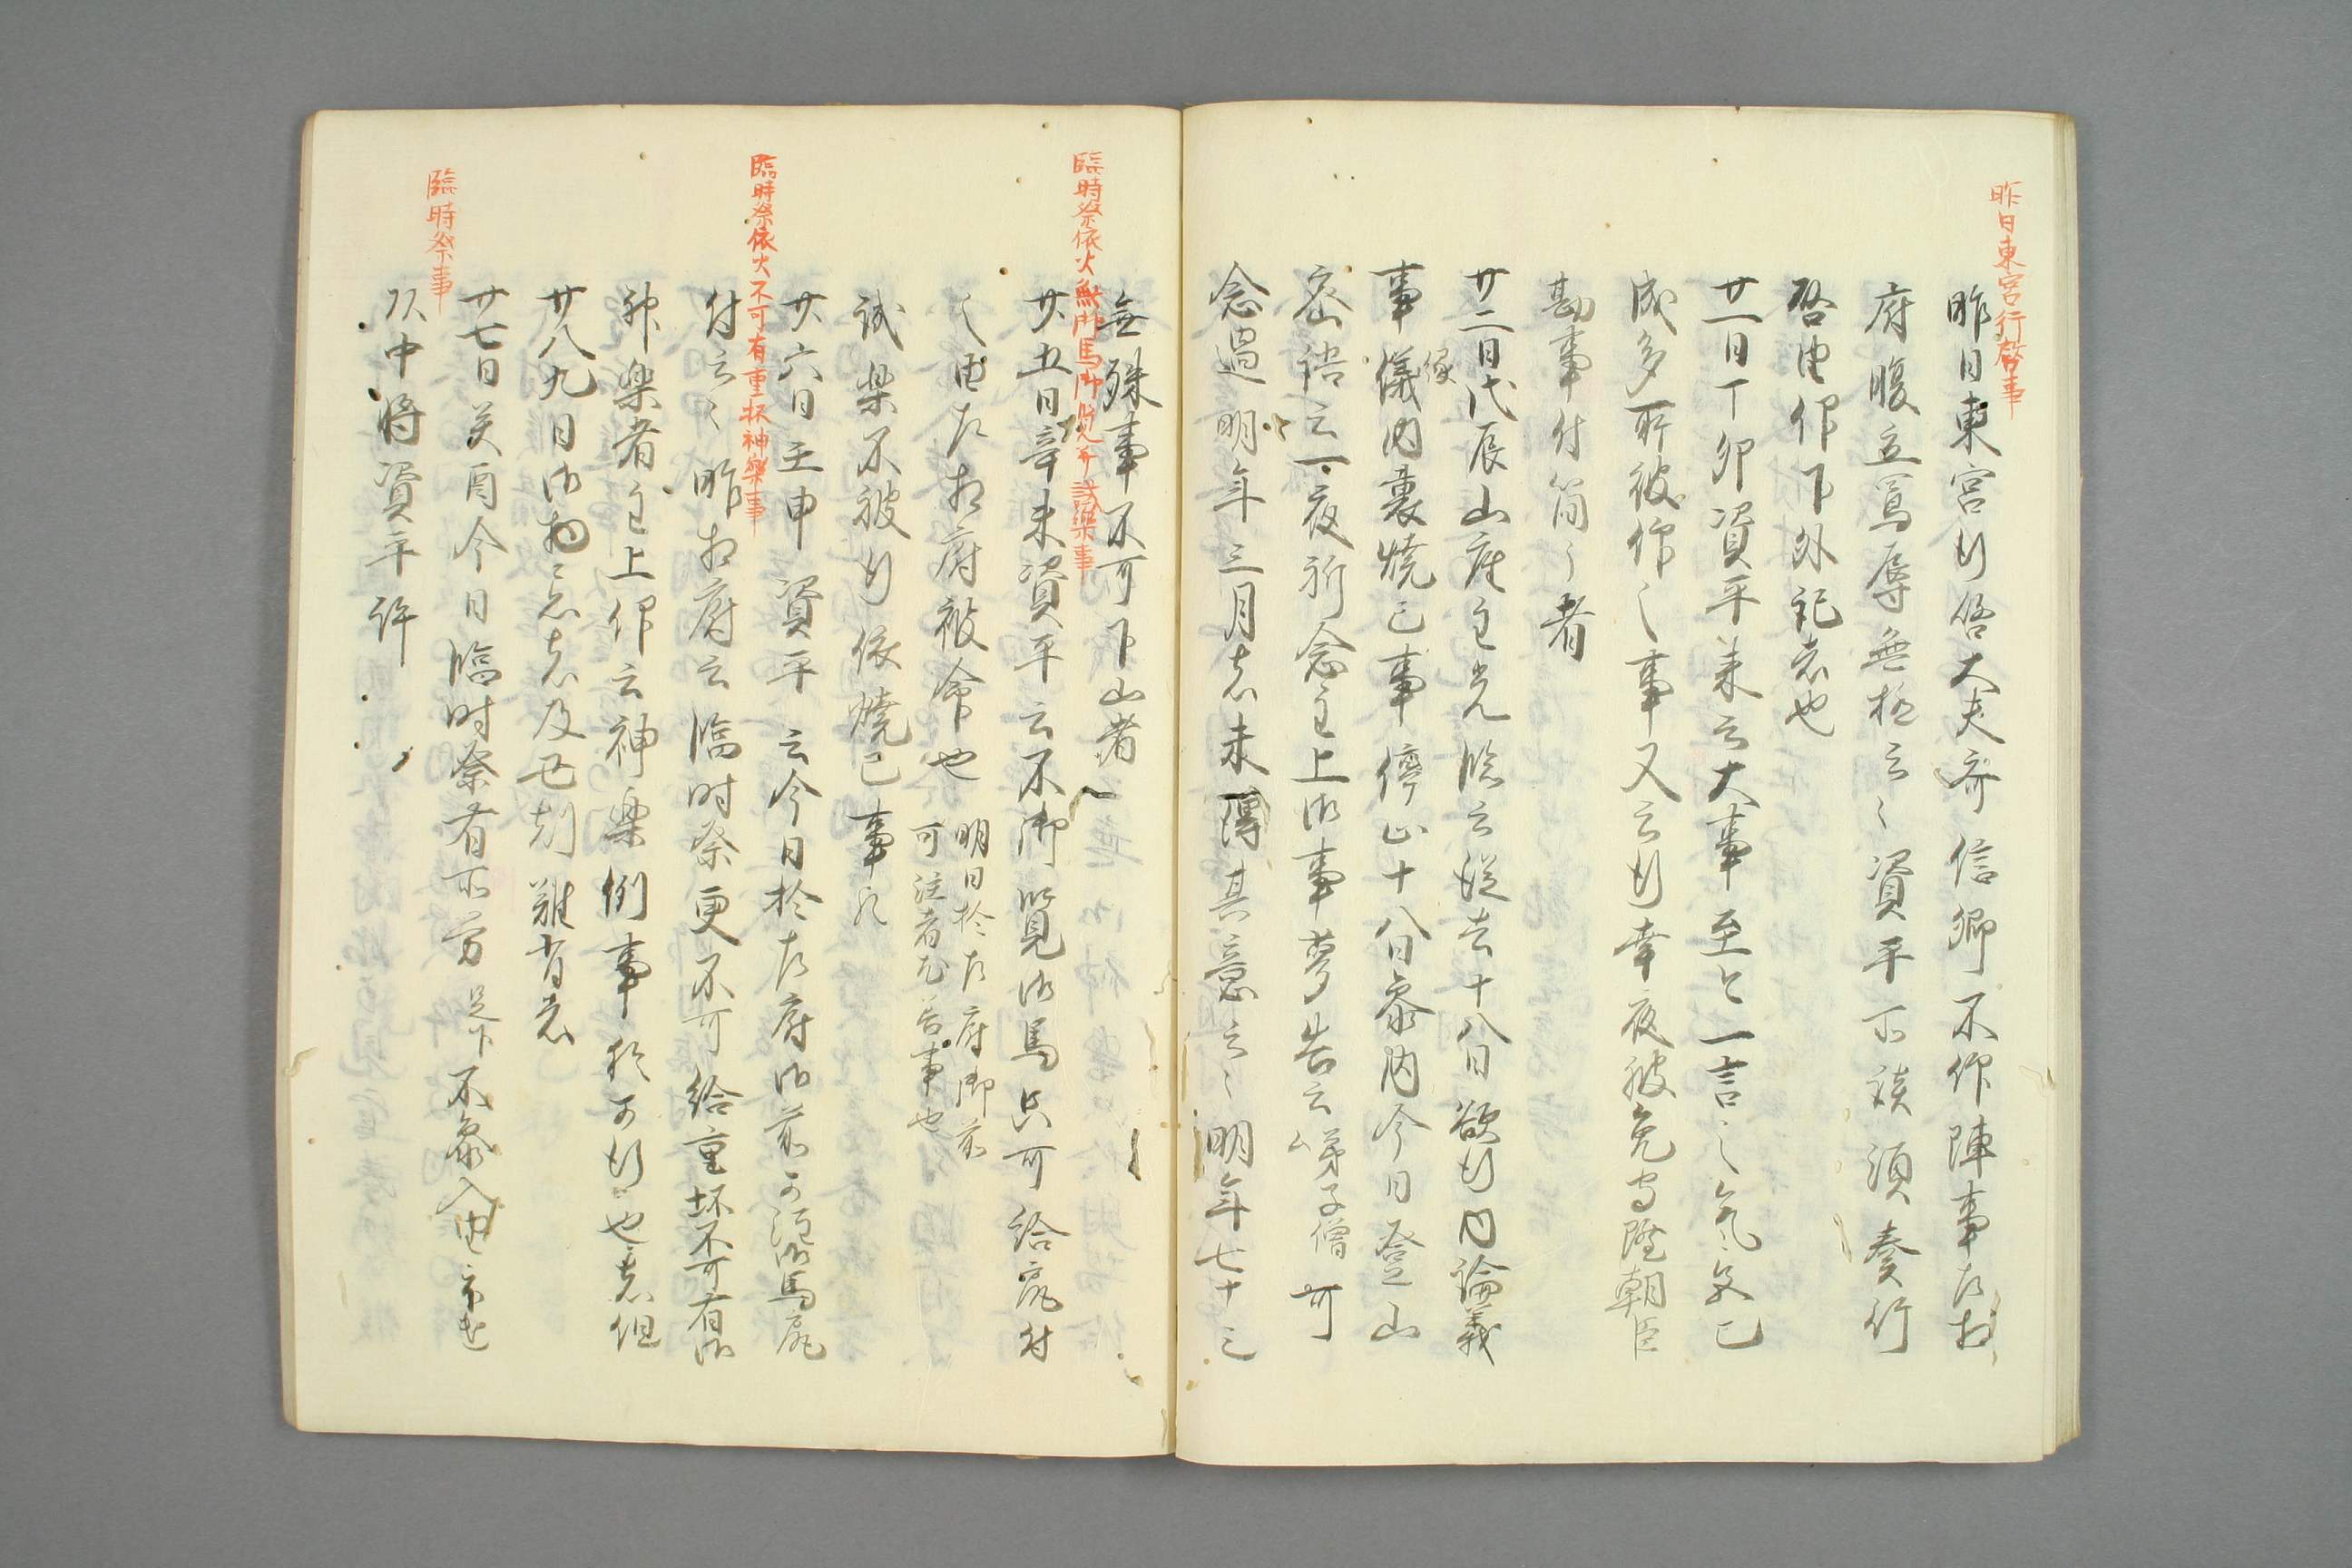 昨日東宮行啓事
昨日東宮行啓大夫斉信卿不仰陣事左相
府腹立罵辱無極云々資平所談須奏行
啓由仰下外記者也
廿一日丁卯資平来云大事至今一言之気色已
成多所被仰之事又云行幸夜被免守隆朝臣
勘事付簡了者
廿二日戊辰山座主光臨云従去十八日欲行内論義
事儀内裏焼亡事停止十八日参内今日登山
密語云一夜祈念主上御事夢告云弟子僧可
念過明年三月者未得其意云々明年七十三
臨時祭依火無御馬御覧并試楽事
無殊事不可下山者
廿五日辛未資平云不御覧御馬只可給尻付
之由左相府被命也
明日於左府御前
可注者尤苦事也
試楽不被行依焼亡事也
臨時祭依火不可有重杯神楽事
廿六日壬申資平云今日於左府御前可注御馬尻
付云々昨相府云臨時祭更不可給重坏不可有御
神楽者主上仰云神楽例事於可行也者但
廿八九日御物忌者及丑刻難有者
臨時祭事
廿七日癸酉今日臨時祭有所労不参入由示送
頭中将資平許